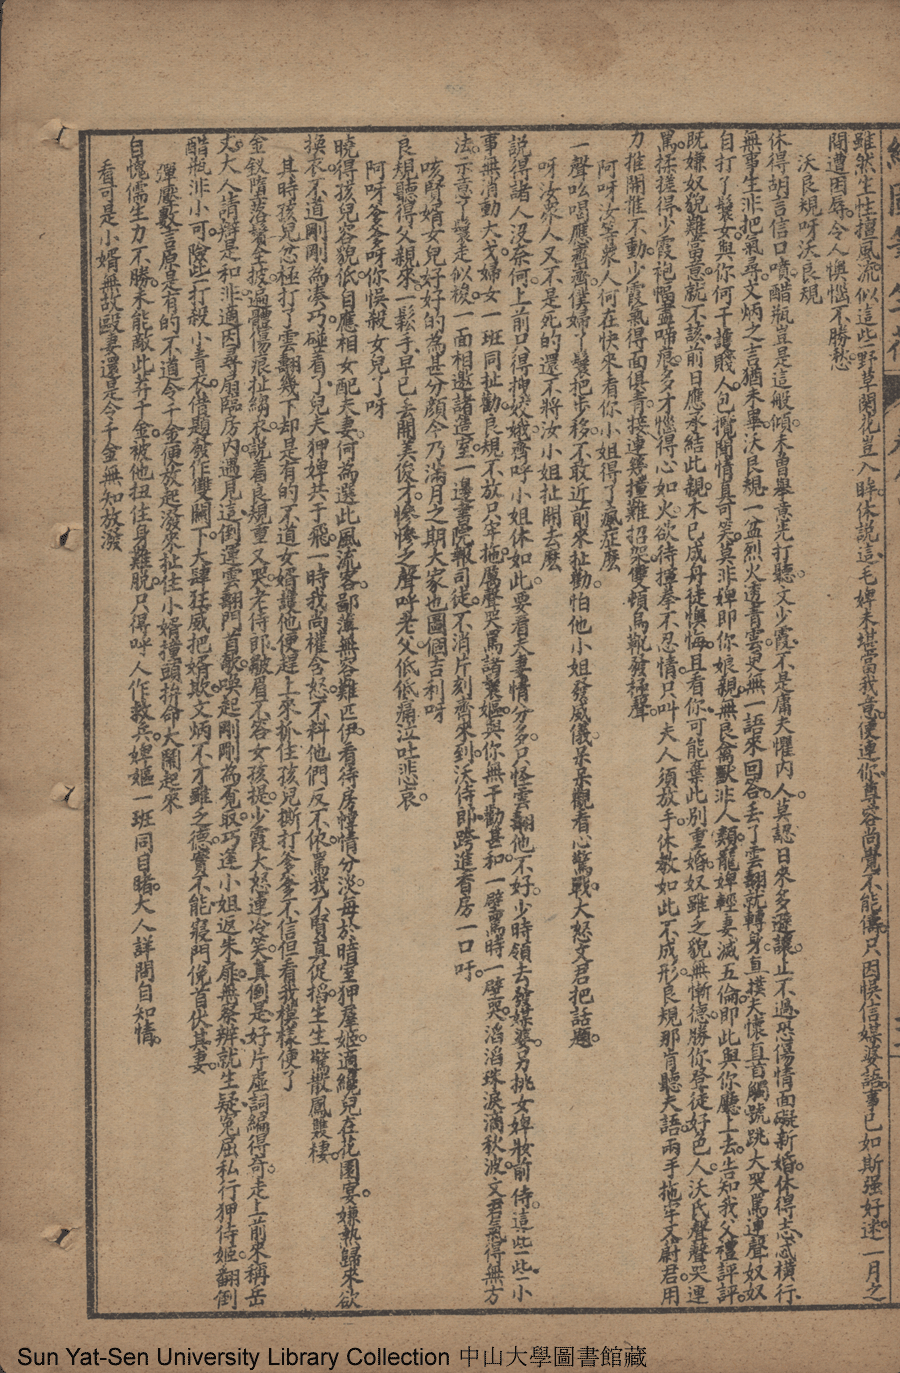 雖然生性擅風流似這些野草閑花豈入眸休說這毛婢未堪當我意便連你尊容尚覺不能儔只因悞信媒婆語事已如斯强好逑一月之
間遭困辱令人懊惱不勝愁
沃良規呀沃良規
休得胡言信口噴醋瓶豈是這般傾未曾舉意先打聽文少霞不是庸夫懼内人莫認日來多遜讓止不過恐傷情面礙新婚休得志忒橫行
無事生非把氣尋文炳之言猶未畢沃良規一盆烈火透青雲更無一語來回答丢了雲翻就轉身直撲夫懷頭觸號跳大哭駡連聲奴奴
自打了鬟女與你何干護賤人包攬閒情真可笑莫非婢即你娘親無良禽獸非人類寵婢輕妻滅五倫即此與你廳上去告知我父禮評評
既嫌奴貌難當意就不該前日應承結此親木已成舟徒懊悔且看你可能棄此别重婚奴雖之貌無慚德勝你登徒好色人沃氏聲聲哭連
駡揉搓得少霞袍幅盡啼痕多才惱得心如火欲待揮拳不忍情只叫夫人須放手休教如此不成形良規那肯聽夫語兩手拖牢文蔚君用
力推開惟不動少霞氣得面俱青接連幾撞難招架雙頓烏靴發極聲
阿呀汝等衆人何在快來看你小姐得了瘋症麽
一聲吆喝應齊齊僕婦丫鬟把步移不敢近前來扯勸怕他小姐發威儀呆呆觀看心驚戰大怒文君把話題
呀汝衆人又不是死的還不將汝小姐扯開去麽
説得諸人没奈何上前口得抑姣娥齊呼小姐休如此要看夫妻情分多只怪雲翻他不好少時領去發媒婆另挑女婢妝前侍這些些小
事無消動大戈婦女一班同扯勸良規不放只牢拖厲聲哭駡諸鬟嫗與你無干勸甚和一壁駡時一壁哭滔滔珠淚滴秋波文君氣得無方
法示意了鬟走似梭一面相邀諸造室一邊書院報司徒不消片刻齊來到沃侍郎跨進香房一口吁
咳賢婿女兒好好的為甚分顏今乃滿月之期大家也圖個吉利呀
良規聽得父親來一鬆手早已丢開美俊才慘慘之聲呼老父低低痛泣吐悲哀
阿呀爹爹呀你悞殺女兒了呀
曉得孩兒容貌低自應相女配夫妻何為選此風流客鄙薄無容難匹伊看待房幃情分淡每於暗室狎羣姬適纔兒在花園宴嫌熱歸來欲
換衣不道剛剛為湊巧碰着了兒夫狎婢共于飛一時我尚權含怒不料他們反不依駡我不賢真促搯生生驚散鳳雙棲
其時孩兒忿極打了雲翻幾下却是有的不道女婿護他便趕上來抓住孩兒撕打爹爹不信但看我模樣便了
金釵墮落鬢全披遍體傷痕扯縐衣説着良規重又哭老侍郎皺眉不容女孩提少霞大怒連冷笑真倒是好片虛詞編得奇走上前來稱岳
丈大人情辯是和非適因尋扇臨房内遇見這倒運雲翻門首敵唤起剛剛為覓取巧逢小姐返朱扉無察辨就生疑冤屈私行狎侍姬翻倒
醋瓶非小可險些打殺小青衣借題發作雙關下大肆狂威把婿欺文炳不才雖之德實不能寢門俛首伏其妻
彈壓數言原是有的不道令千金便放起潑來扯住小婿撞頭拚命大鬧起來
自愧儒生力不勝未能敵此弄千金被他扭住身難脱只得呼人作救兵婢嫗一班同目睹大人詳問自知情
看可是小婿無故毆妻還是令千金無知放潑
Sun Yat-Sen University Library Collection 中山大學圖書館藏